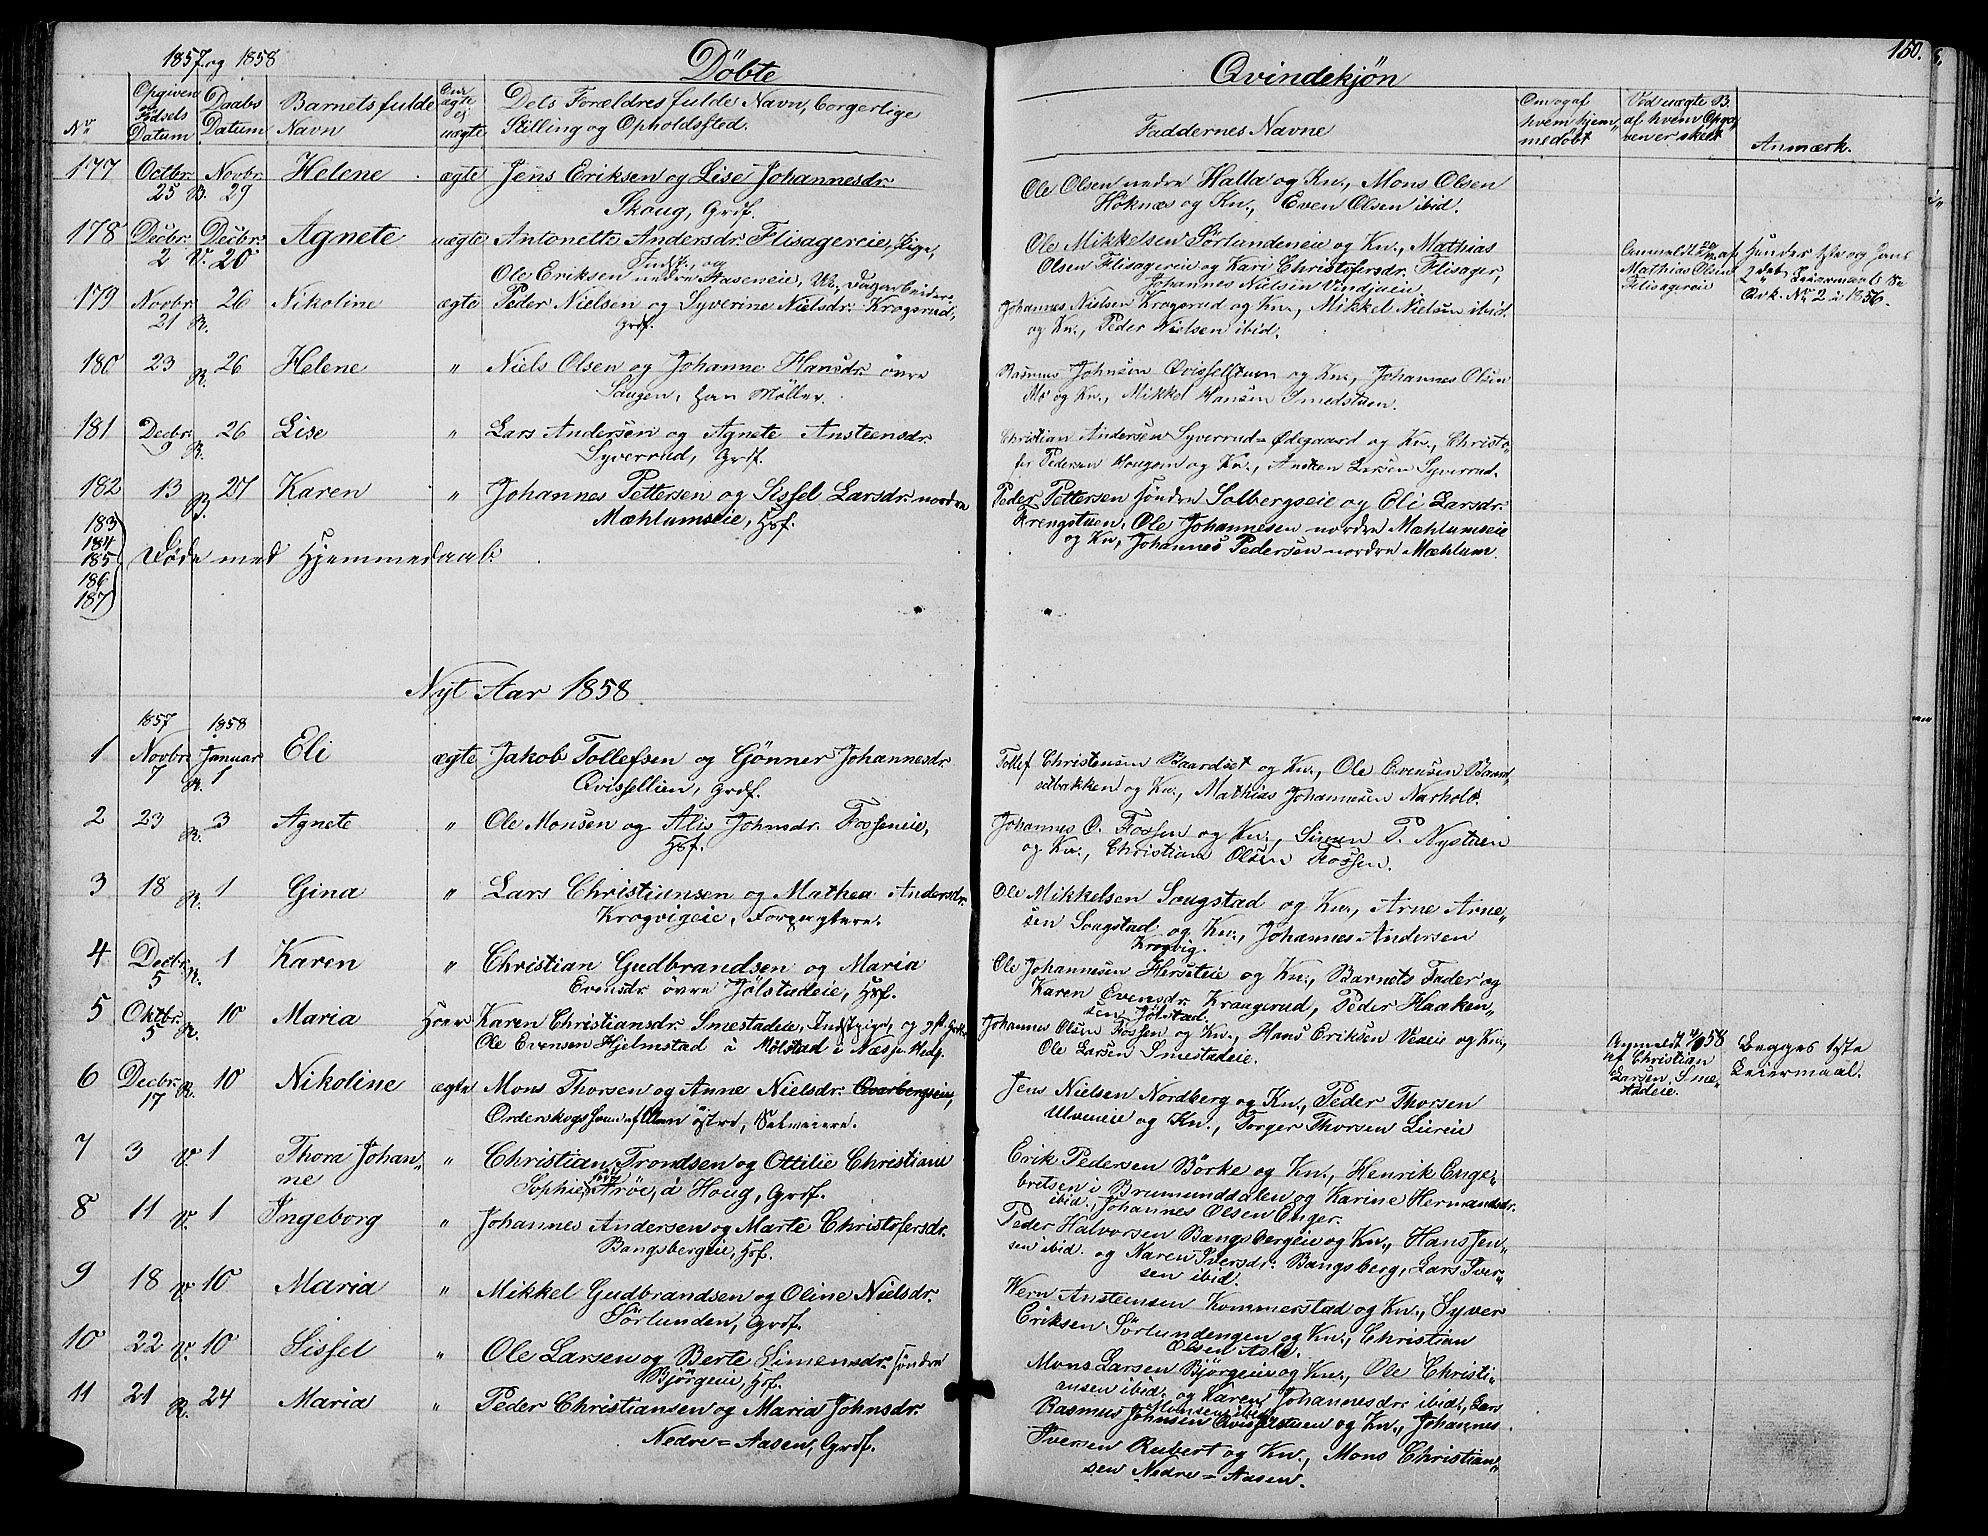 1857 og 1858
Döbte
Qvindekjön
150.
No
Opgiven Födsels Datum
Daabs Datum
Barnets fulde Navn
Om ægte ej uægte
Dets Forældres fulde Navn, borgerlige Stilling og Opholdssted.
Faddernes Navne
Om og af hvem hjemmedöbt
Ved uægte B. af hvem Opgaven er skeet
Anmærk.
177 Octbr. 25 B. Novbr. 29 Helene ægte Jens Eriksen og Lise Johannesdr.
Skoug, Grdf.
Ole Olsen nedre Halla og Kn., Mons Olsen
Höknæs og Kn., Even Olsen ibid.
178 Decbr. 2 V. Decbr. 20 Agnete uægte Antonette Andersdr. Flisagereie, Pige,
Indst., og
Ole Eriksen nedre Aaseneie, Uk., Dagarbeider,
Ole Mikkelsen Sörlundeneie og Kn., Mathias
Olsen Flisagereie og Kari Christofersdr. Flisager,
Johannes Nielsen Vindjueie.
Anmeldt 20/12 af
Mathias Olsen
Flisagereie
Hendes 1ste og Hans
2det Leiermaal Se
Qvk. No 2 i 1856.
179 Novbr. 21 R. 26 Nikoline ægte Peder Nielsen og Syverine Nielsdr. Krogsrud,
Grdf.
Johannes Nielsen Krogsrud og Kn., Mikkel Nielsen ibid.
og Kn., Peder Nielsen ibid.
180 23 R. 26 Helene " Niels Olsen og Johanne Hansdr. övre
Saugen, han Möller.
Rasmus Johnsen Qvisselstuen og Kn., Johannes Olsen
Mo og Kn., Mikkel Hansen Smedstuen.
181 Decbr. 3 R. 26 Lise " Lars Andersen og Agnete Ansteensdr.
Syverrud, Grdf.
Christian Andersen Syverrud=Ødegaard og Kn., Christo„
fer Pedersen Hougom og Kn., Andreas Larsen Syverrud.
182 13 B. 27 Karen " Johannes Pettersen og Sissel Larsdr. nordre
Mæhlumseie, Hsf.
Peder Pettersen söndre Solbergseie og Eli Larsdr.
Krengstuen, Ole Johannesen nordre Mæhlumseie
og Kn., Johannes Pedersen nordre Mæhlum.
183
184
185 Döde med Hjemmedaab.
186
187
Nyt Aar 1858
1857 1858
1 Novbr. 7 R. Januar 1 Eli ægte Jakob Tollefsen og Gönner Johannesdr.
Qvissellien, Grdf.
Tollef Christensen Baardset og Kn., Ole Evensen Baard„
setbakken og Kn., Mathias Johannesen Narhold.
2 23 R. 3 Agnete " Ole Monsen og Alis Johnsdr. Fosseneie,
Hsf.
Johannes O. Fossen og Kn., Simen P. Nystuen
og Kn., Christian Olsen Fossen.
3 18 R. 1 Gina " Lars Christiansen og Mathea Andersdr.
Krogvigeie, Forpagtere.
Ole Mikkelsen Sougstad og Kn., Arne Arne„
sen Sougstad og Kn., Johannes Andersen
Krogvig.
4 Decbr. 5 R. 1 Karen " Christian Gudbrandsen og Maria
Evensdr. övre Jölstadeie, Hsf.
Ole Johannesen Herseteie og Kn., Barnets Fader og
Karen Evensdr. Kraagerud, Peder Haaken„
sen Jölstad.
5 Oktbr. 5 R. 10 Maria Karen Christiansdr. Smestadeie, Indst. pige, og gft.
Ole Evensen Hjelmstad à Mölstad i Næs p. Hedg.
Johannes Olsen Fossen og Kn., Hans Eriksen Veaeie og Kn.,
Ole Larsen Smestadeie.
Anmeldt 58
af Christian
Larsen Sme„
stadeie.
Begges 1ste
Leiermaal.
6 Decbr. 17 R. 10 Nikoline ægte Mons Thorsen og Anne Nielsdr. Overbergseie,
östre, Selveiere.
Jens Nielsen Nordberg og Kn., Peder Thorsen
Ulveneie og Kn., Torger Thorsen Lieeie
7 3 V. 1 Thora Johan„
ne " Christian Trondsen og Ottilie Christiane
Sophie född Aröe, à Houg, Grdf.
Erik Pedersen Börke og Kn., Henrik Enge„
bretsen i Brumunddalen og Karine Hermandsdr.
ibid., Johannes Olsen Enger.
8 11 V. 1 Ingeborg " Johannes Andersen og Marte Christofersdr.
Bangsbergeie, Hsf.
Peder Halvorsen Bangsbergeie og Kn., Hans Jen„
sen ibid. og Karen Iversdr. Bangsberg, Lars Iver„
sen ibid.
9 18 V. 10 Maria " Mikkel Gudbrandsen og Oline Nielsdr.
Sörlunden, Grdf.
Wern Ansteinsen Kommerstad og Kn., Syver
Eriksen Sörlundengen og Kn., Christian
Olsen Asla.
10 22 V. 10 Sissel " Ole Larsen og Berte Simensdr. söndre
Björgeie, Hsf.
Mons Larsen Björgeie og Kn., Ole Christi„
ansen ibid. og Karen Johannesdr. ibid., Lars
Monsen ibid.
11 21 R. 24 Maria " Peder Christiansen og Maria Johnsdr.
Nedre=Aasen, Grdf.
Rasmus Johnsen Qvisselstuen og Kn., Johannes
Iversen Rubert og Kn., Mons Christian„
sen Nedre=Aasen.